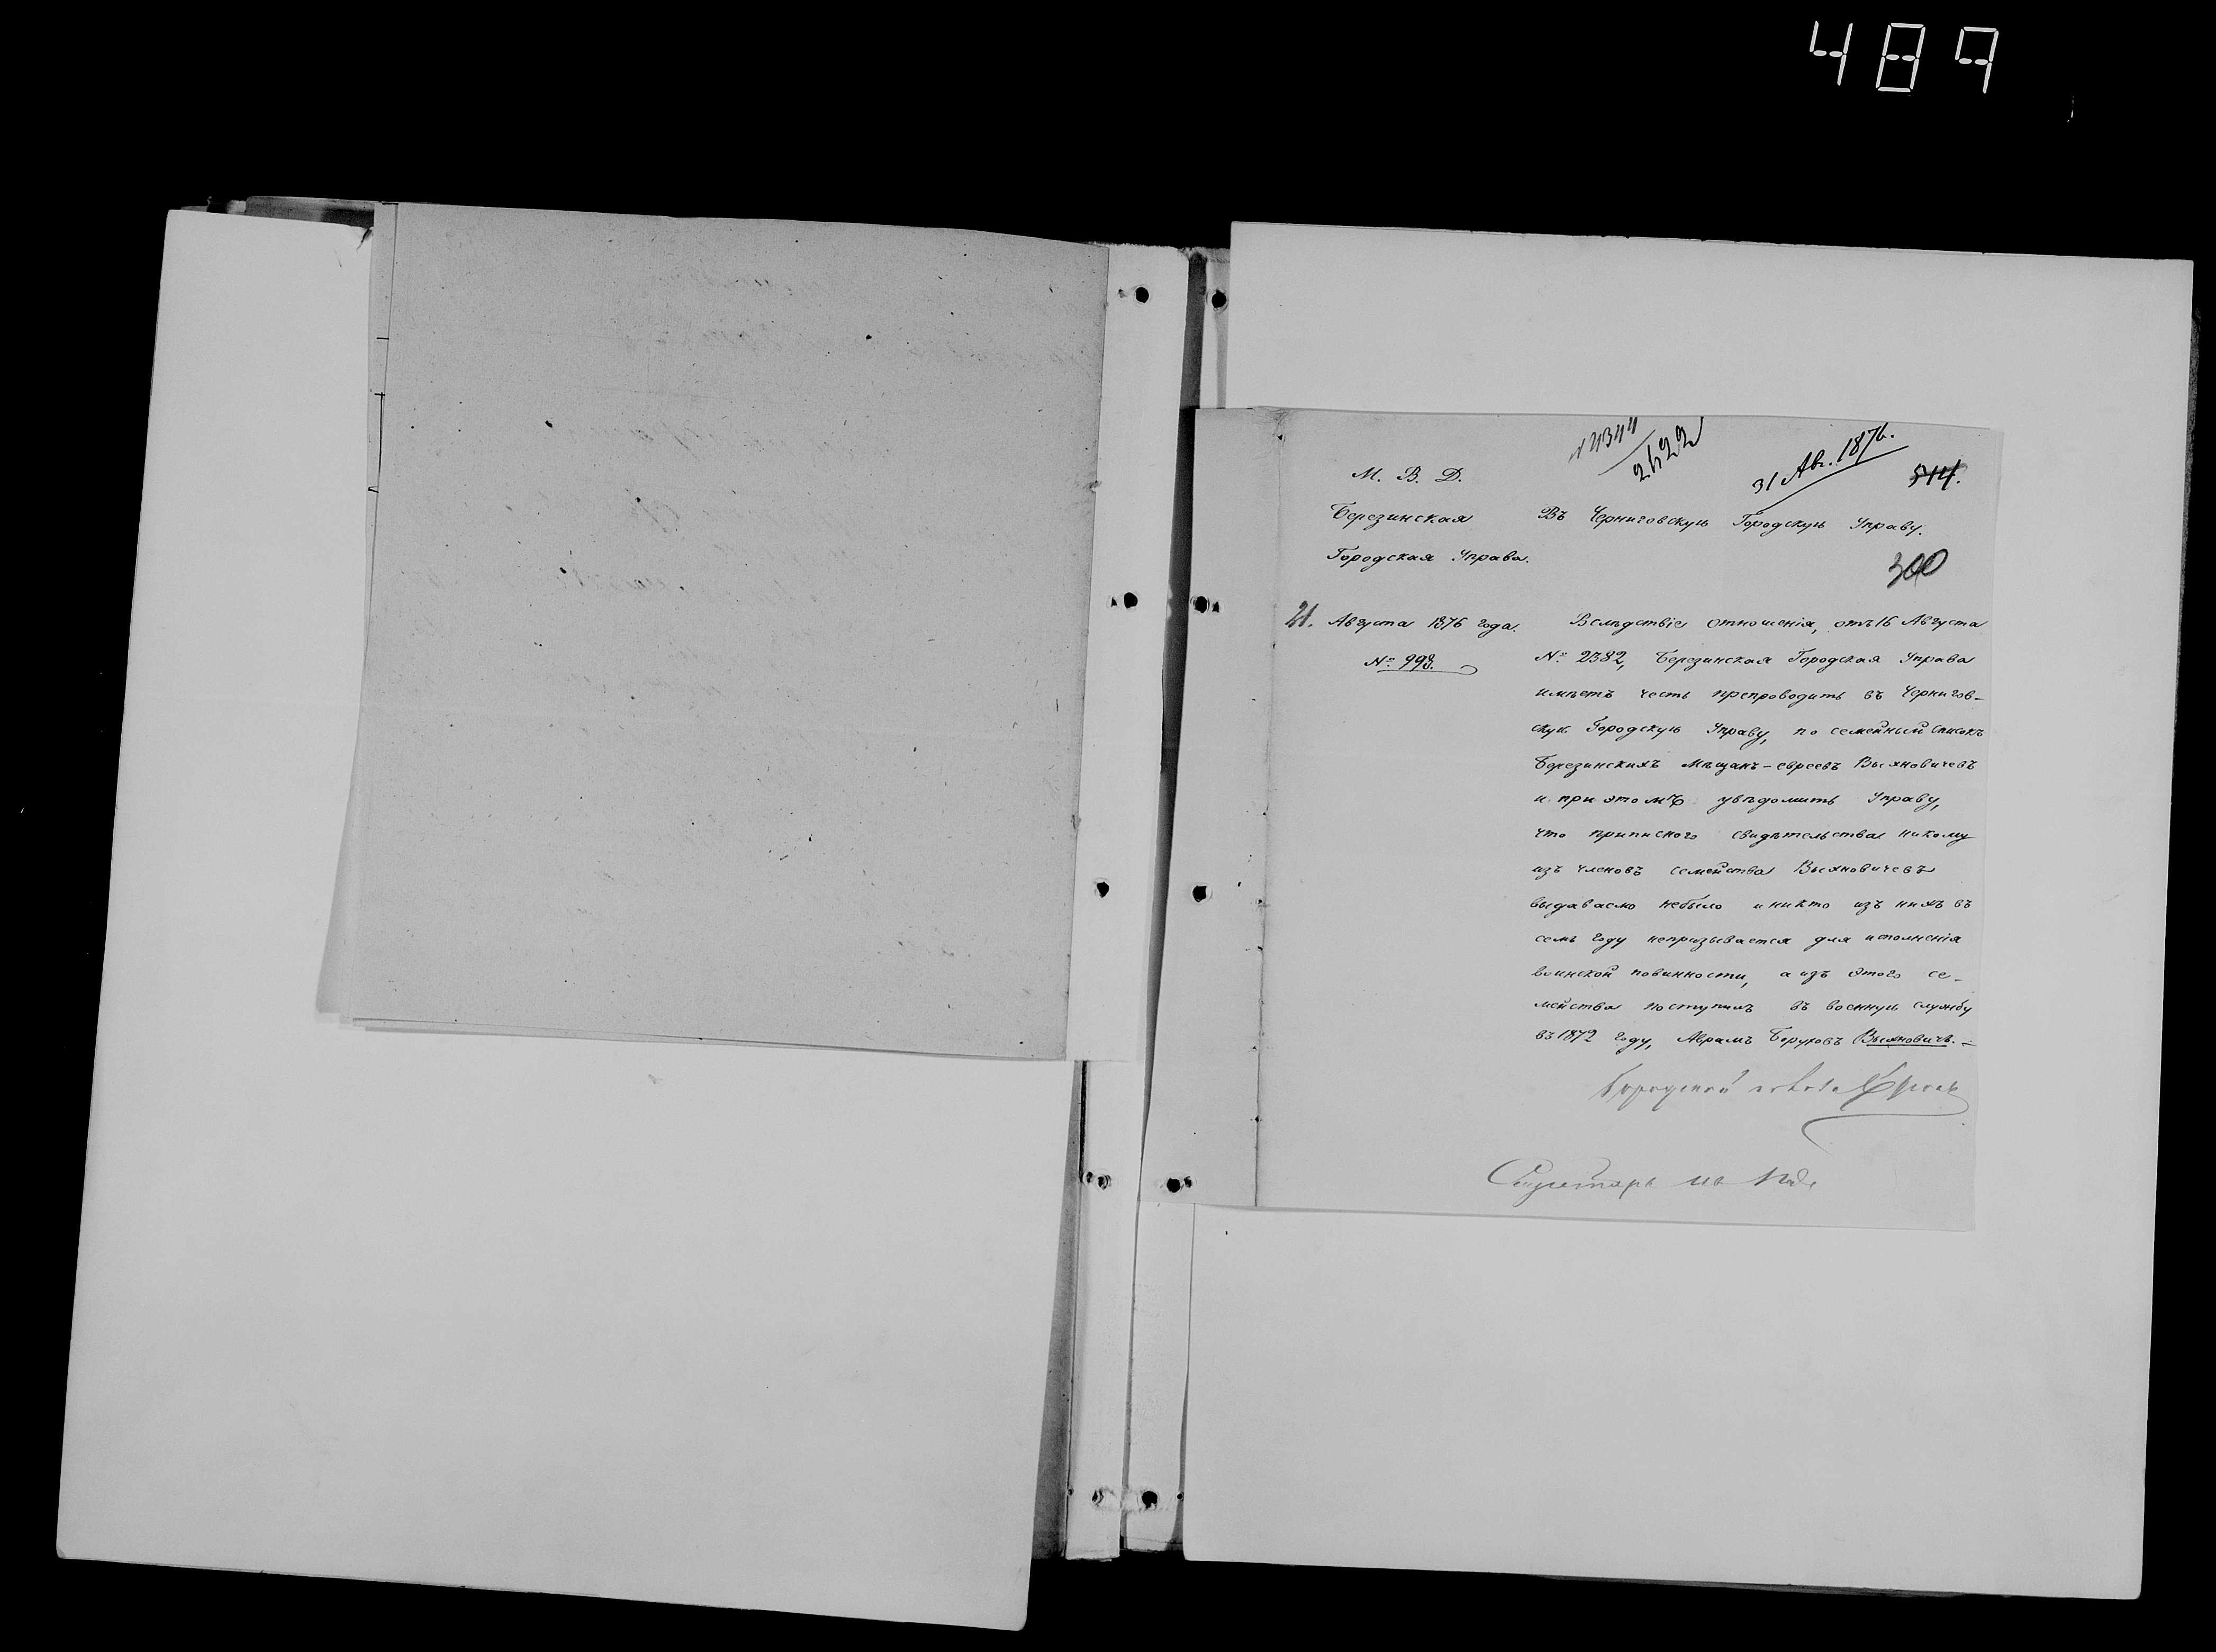 489
№ 4344
2422
31 Авг. 1876.
544.
М. В. Д.
Березинская
Городская Управа.
Въ Черниговскую Городскую Управу.
300
21. Августа 1876 года.
№ 998.
Вслѣдствіе отношенія, отъ 16 Августа
№ 2382, Березинская Городская Управа
имѣетъ честь препроводить въ Чернигов-
скую Городскую Управу, по семейный списокъ
Березинскихъ Мѣщанъ-евреевъ Выхновичевъ
и при этомъ увѣдомить Управу,
что приписного свидѣтельства никому
изъ членовъ семейства Выхновичевъ
выдаваемо небыло и никто изъ нихъ въ
семъ году непризывается для исполненія
воинской повинности, а изъ этого се-
мейства поступилъ въ военную службу
въ 1872 году, Абрамъ Боруховъ Выхновичъ.-
Городской голова
Секретарь